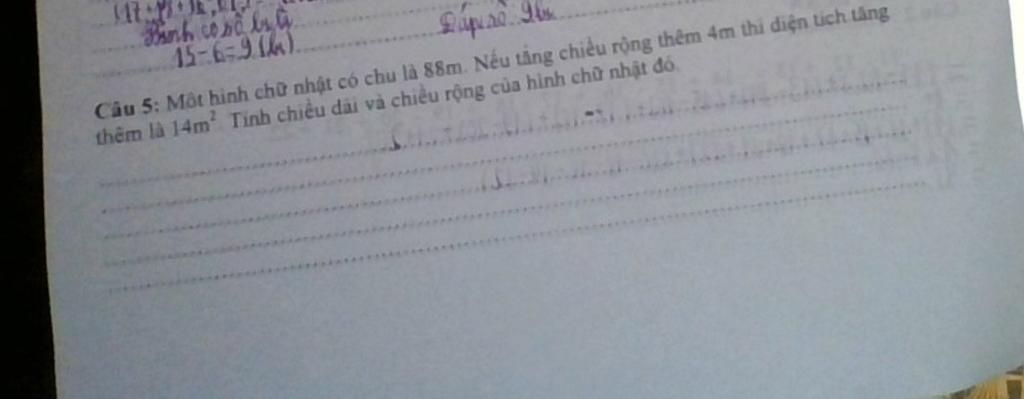 Bình có số bi là
15 - 6 = 9 (bi)
Đáp số 9 bi
Câu 5: Môt hình chữ nhật có chu là 88m. Nếu tăng chiều rộng thêm 4m thì diện tích tăng
thêm là 14m² Tính chiều dài và chiều rộng của hình chữ nhật đó